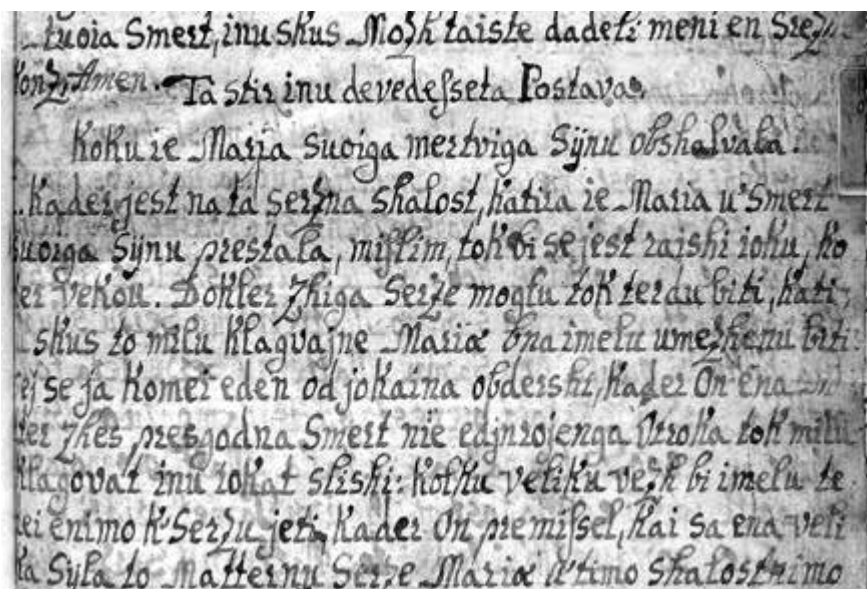 tuoia Smert, inu skus Mozh taiste dadeti meni en Srezh
konz, Amen. Ta stir inu devedesseta Postava.
Koku ie Maria suoiga mertviga Sÿnu obshalvala.
Kader jest na ta serzna Shalost, katira ie Maria u'Smert
suoiga Sÿnu prestala, mislim, tok bi se jest raishi ioku, ko
ier vekou. Dokler zhiga Serze moglu tok terdu biti, kati
skus to milu klagvajne Mariæ bna imelu umezhenu biti
sej se ja komei eden od jokaina obdershi, kader On ena
ker zhes presgodna Smert nie edjnrojenga Otroka tok milu
klagovat inu iokat slishi: kolku veliku vezh bi imelu te
ei enimo k'Serzu jeti, kader On premissel, kai sa ena veli
ka Syla to Matternu Serze Mariæ s'timo Shalostnimo